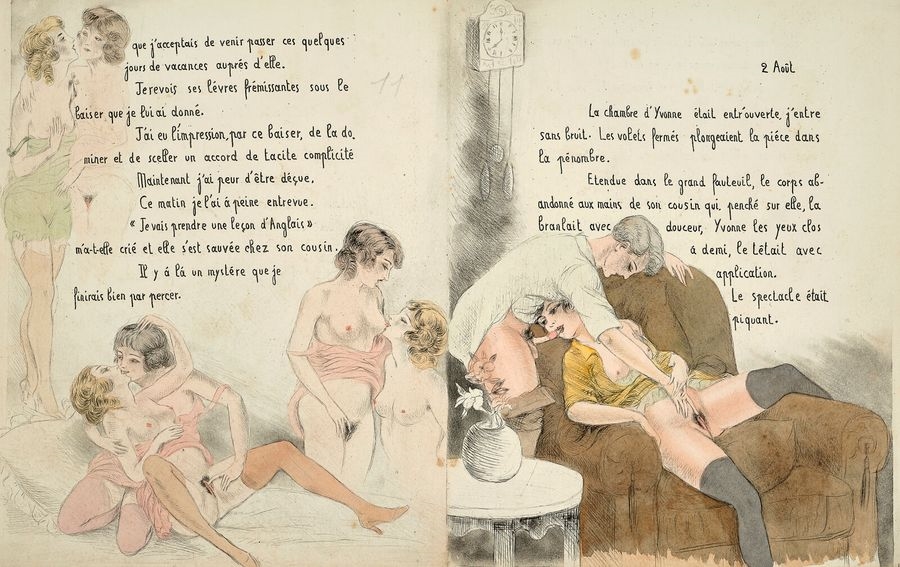 que j'acceptais de venir passer ces quelques
jours de vacances auprés d'elle.
Je revois ses lévres frémissantes sous le
baiser que je lui ai donné.
J'ai eu l'impression, par ce baiser, de la do.
miner et de sceller un accord de tacite complicité
Maintenant j'ai peur d'être déçue.
Ce matin je l'ai à peine entrevue.
« Je vais prendre une leçon d'Anglais »
m'a-t-elle crié et elle s'est sauvée chez son cousin.
Il y á lá un mystére que je
finirais bien par percer.
11
2 Août
La chambre d'Yvonne était entr'ouverte, j'entre
sans bruit. Les volets fermés plongeaient la piéce dans
la pénombre.
Etendue dans le grand fauteuil, le corps ab-
andonné aux mains de son cousin qui, penché sur elle, la
branlait avec douceur, Yvonne les yeux clos
á demi, le tétait avec
application.
Le spectacle était
piquant.